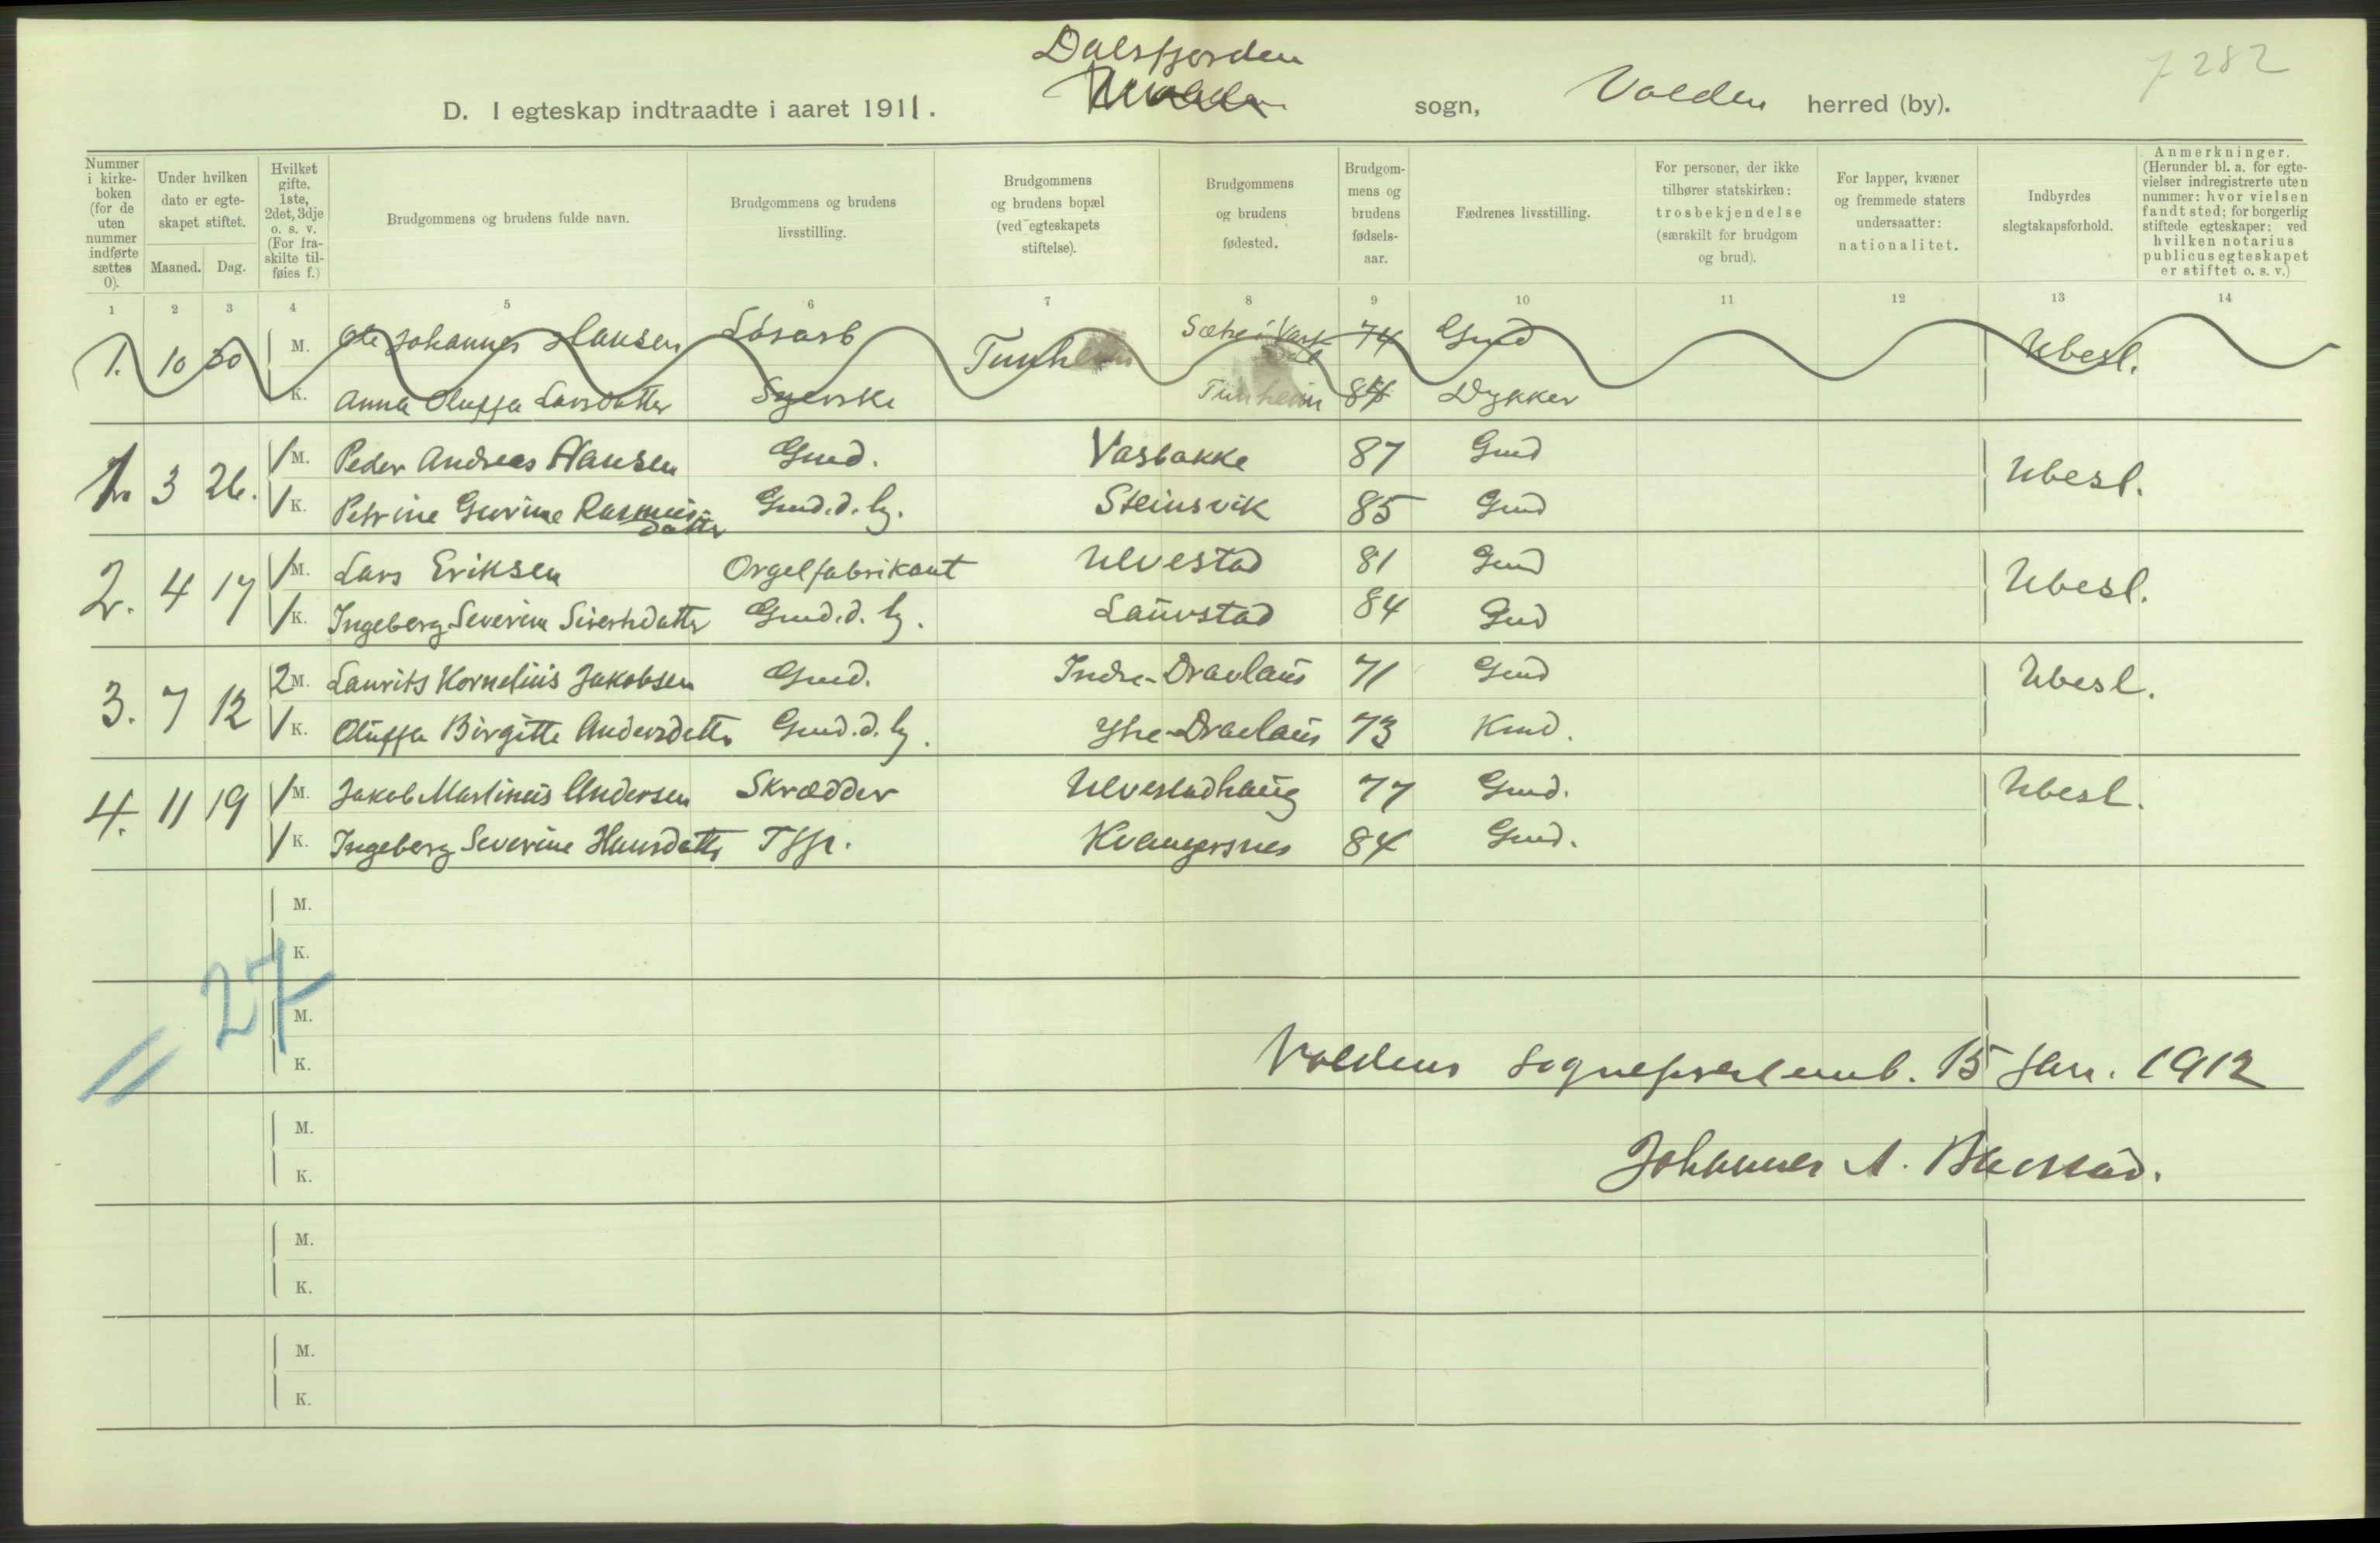 Dalsfjorden
7282
D. I egteskap indtraadte i aaret 1911. sogn, Volden herred (by).
Nummer i kirkeboken (for de uten nummer indførte sættes 0).
Under hvilken dato er egteskapet stiftet.
Maaned. Dag.
Hvilket gifte. 1ste, 2det, 3dje o. s. v. (For fraskilte tilføies f.)
Brudgommens og brudens fulde navn.
Brudgommens og brudens livsstilling.
Brudgommens og brudens bopæl (ved egteskapets stiftelse).
Brudgommens og brudens fødested.
Brudgommens og brudens fødselsaar.
Fædrenes livsstilling.
For personer, der ikke tilhører statskirken: trosbekjendelse (særskilt for brudgom og brud).
For lapper, kvæner og fremmede staters undersaatter: nationalitet.
Indbyrdes slegtskapsforhold.
Anmerkninger. (Herunder bl. a. for egtevielser indregistrerte uten nummer: hvor vielsen fandt sted; for borgerlig stiftede egteskaper: ved hvilken notarius publicus egteskapet er stiftet o. s. v.)
1 2 3 4 5 6 7 8 9 10 11 12 13 14
1. 10 30 M. Ole Johannes Hansen Løsarb Tunheim Sætre i 74 Gmd Ubesl.
K. Anna Oluffa Larsdatter Syerske Tunheim 84 Dykker
1. 3 26. 1 M. Peder Andreas Hansen Gmd. Vasbakke 87 Gmd Ubesl.
1 K. Petrine Gurine Rasmusdatter Gmd. d. by. Steinsvik 85 Gmd
2. 4 17 1 M. Lars Eriksen Orgelfabrikant Ulvestad 81 Gmd Ubesl.
1 K. Ingeberg Severine Sivertsdattr Gmd. d. by. Lauvstad 84 Gmd
3. 7 12 2 M. Laurits Kornelius Jakobsen Gmd. Indre-Dravlaus 71 Gmd Ubesl.
1 K. Oluffa Birgitte Andersdattr Gmd. d. by. Ytre-Dravlaus 73 Kmd.
4. 11 19 1 M. Jakob Martinus Andersen Skrædder Ulvestadhaug 77 Gmd. Ubesl.
1 K. Ingeberg Severine Hansdattr Tjp. Kvangersnes 84 Gmd.
M.
K.
27
M.
K.
Voldens sogneprestemb. 15 Jan. 1912
M.
K.
Johannes A. Barstad.
M.
K.
M.
K.